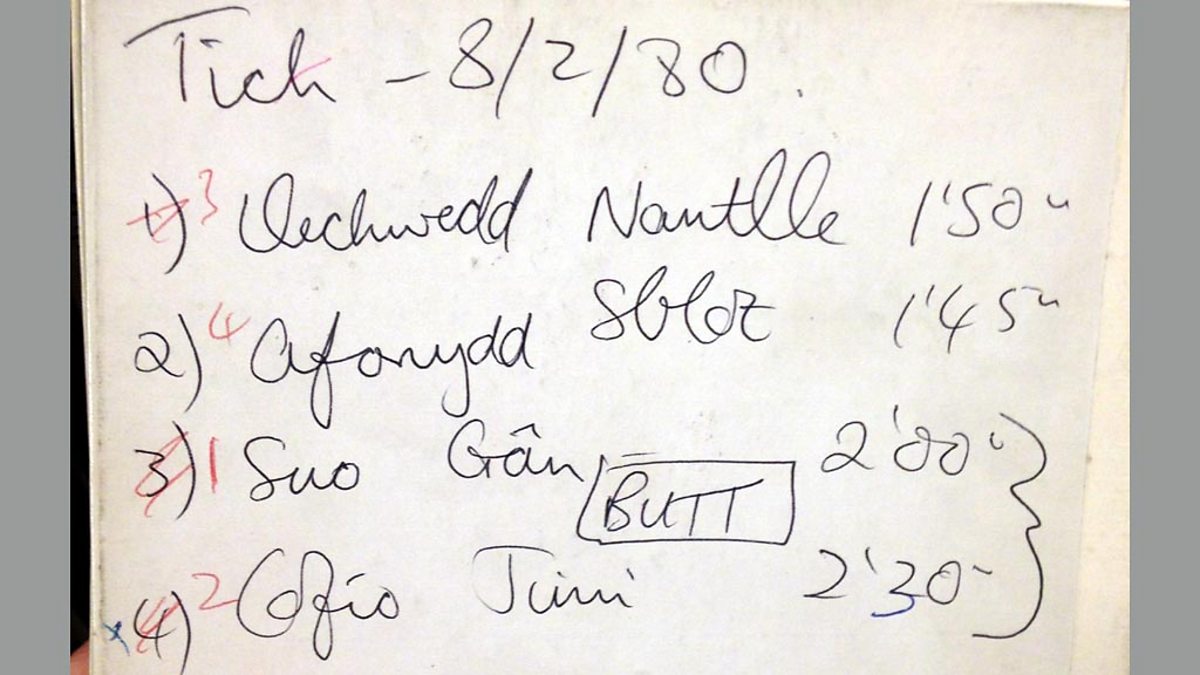 Tich - 8/2/80.
1) 3 Llechwedd Nantlle 1'50"
2) 4 Afonydd Sbloz 1'45"
3) 1 Suo Gân BUTT 2'00"
x 4) 2 Cofio Jimi 2'30"